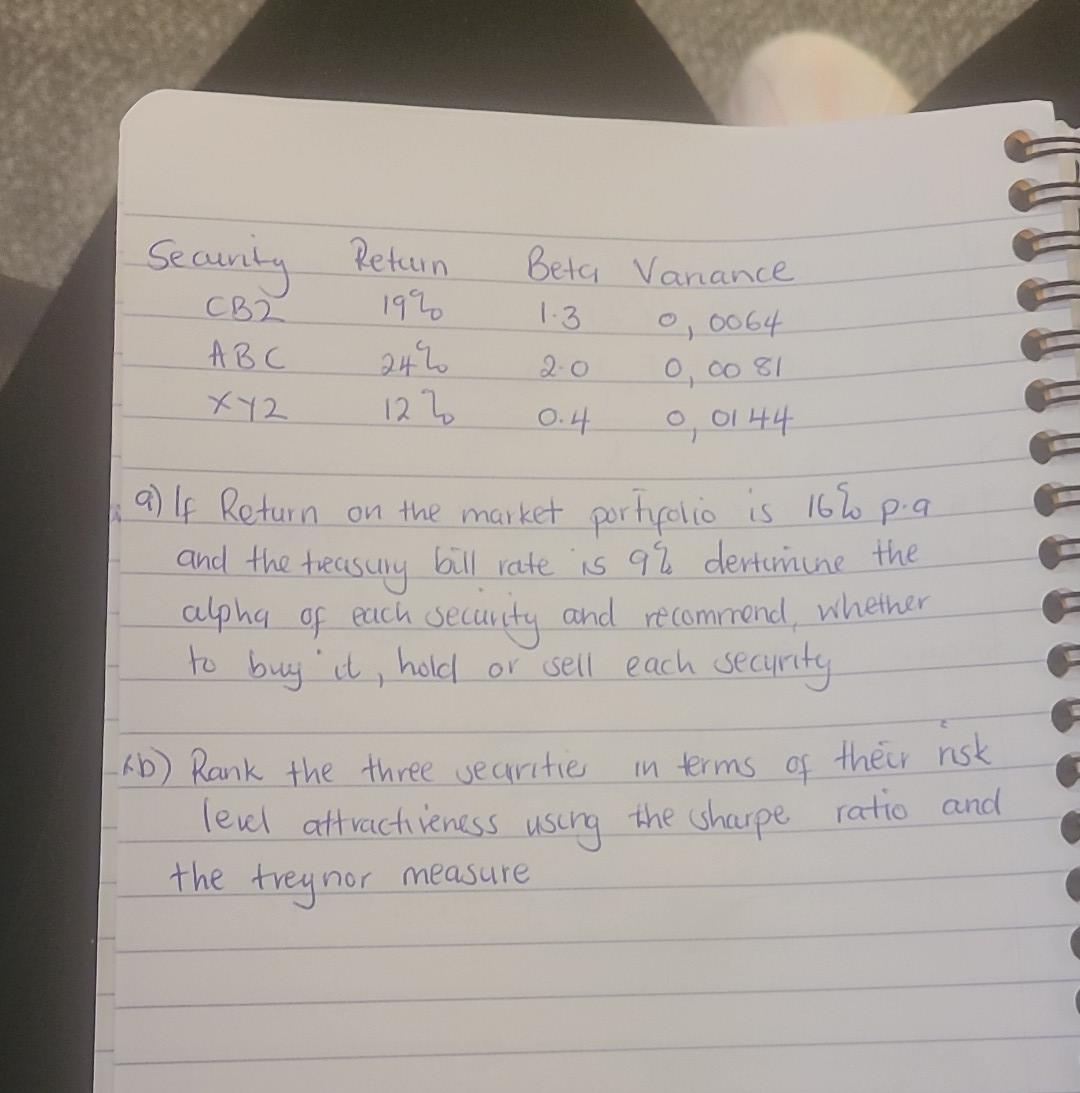 Security Return Beta Variance
CBZ 19% 1.3 0,0064
ABC 24% 2.0 0,0081
XYZ 12% 0.4 0,0144
a) If Return on the market portfolio is 16% p.a
and the treasury bill rate is 9% dertimine the
alpha of each security and recommend, whether
to buy it, hold or sell each security
b) Rank the three securities in terms of their risk
level attractiveness using the sharpe ratio and
the treynor measure